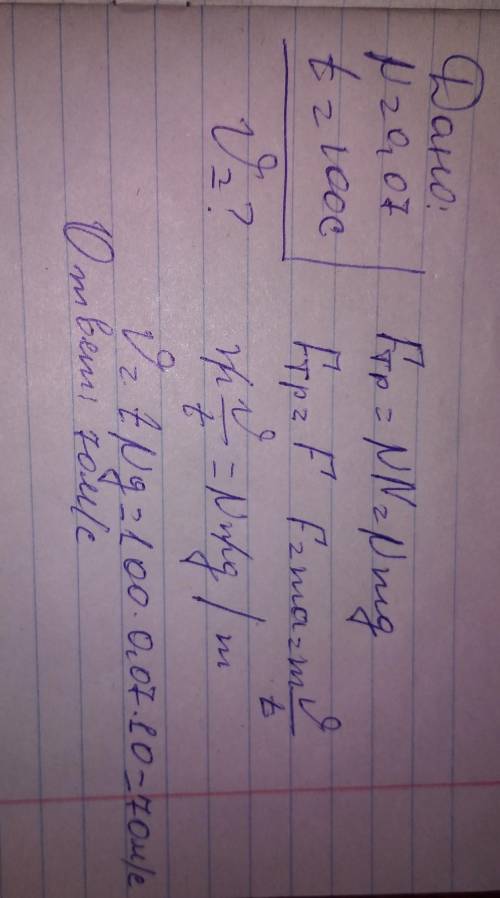 Дано:
μ=0,07
t=100с
V=?
Fтр=μN=μmg
Fтр=F F=ma=m V/t
m V/t = μmg / m
V=tμg=100·0,07·10=70м/с
Ответ: 70м/с